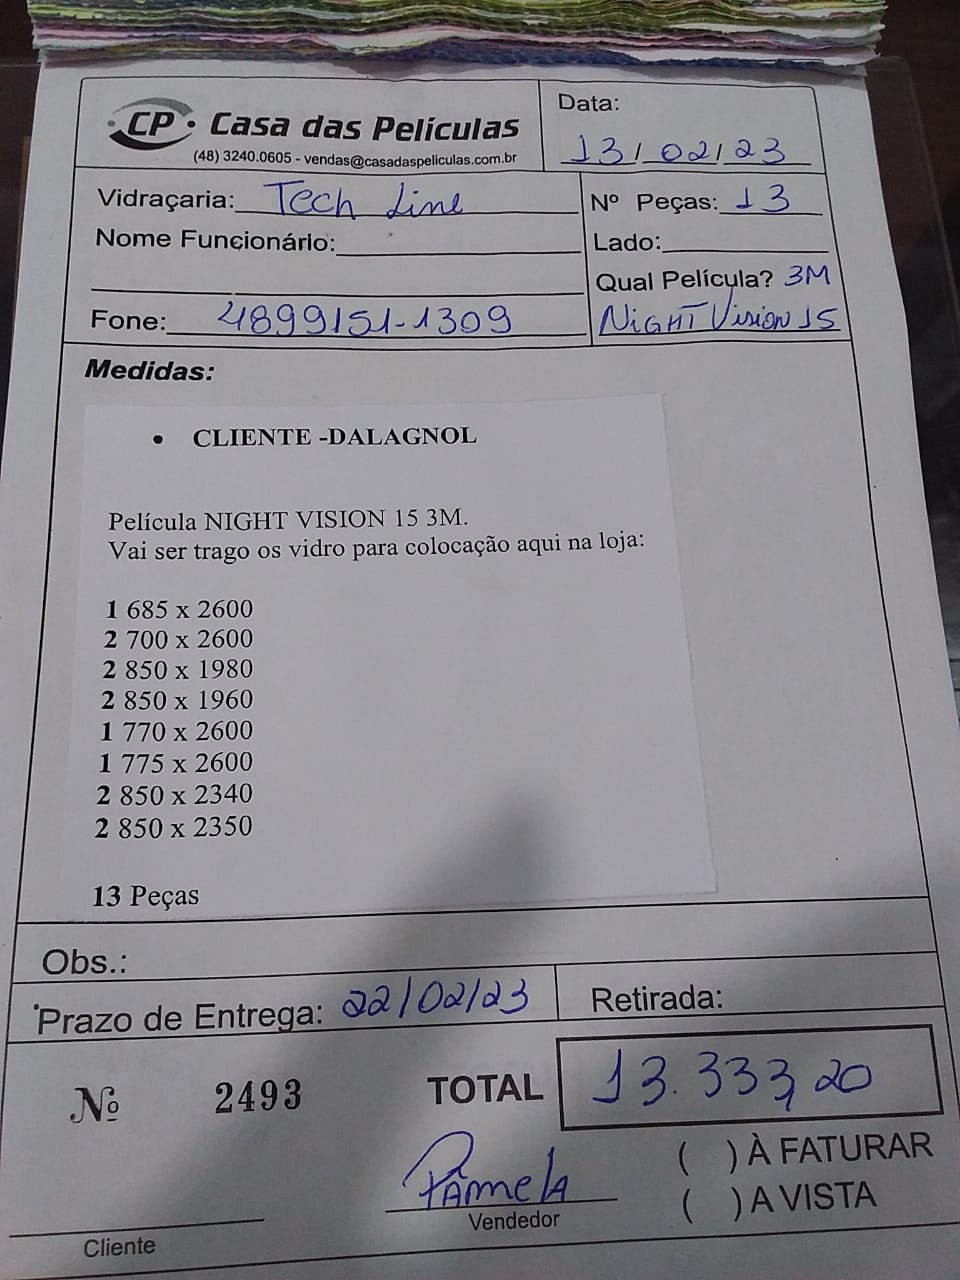 CP Casa das Películas
(48) 3240.0605 - vendas@casadaspeliculas.com.br
Data:
13/02/23
Vidraçaria: Tech Line
Nº Peças: 13
Nome Funcionário:
Lado:
Qual Película? 3M
Fone: 4899151-1309
NIGHT Vision 15
Medidas:
• CLIENTE -DALAGNOL
Película NIGHT VISION 15 3M.
Vai ser trago os vidro para colocação aqui na loja:
1 685 x 2600
2 700 x 2600
2 850 x 1980
2 850 x 1960
1 770 x 2600
1 775 x 2600
2 850 x 2340
2 850 x 2350
13 Peças
Obs.:
Prazo de Entrega: 22/02/23
Retirada:
Nº 2493
TOTAL 13.333,20
( ) À FATURAR
Pâmela
( ) A VISTA
Vendedor
Cliente